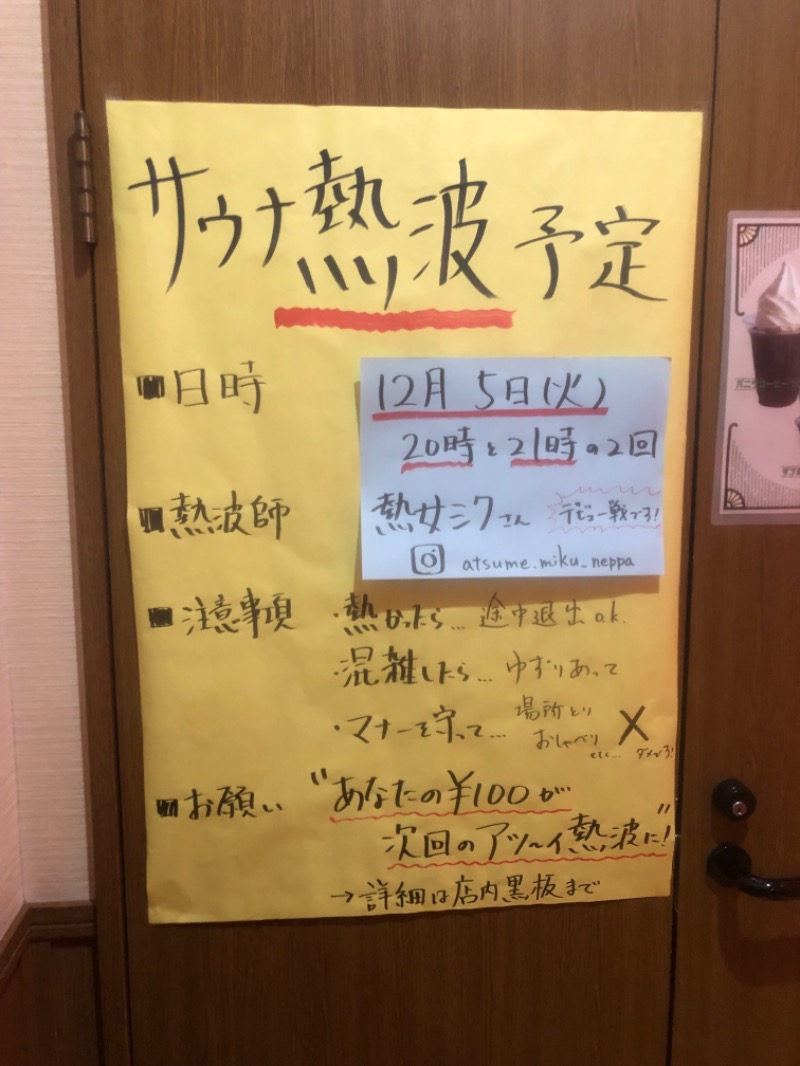 サウナ熱波予定
■日時
12月5日(火)
20時と21時の2回
■熱波師
熱女ミクさん デビュー戦です!
atsume.miku_neppa
■注意事項
・熱かったら…途中退出ok.
・混雑したら…ゆずりあって
・マナーを守って…場所とり
おしゃべり
etc... × ダメです!
■お願い "あなたの¥100が
次回のアツ〜イ熱波に!"
→詳細は店内黒板まで